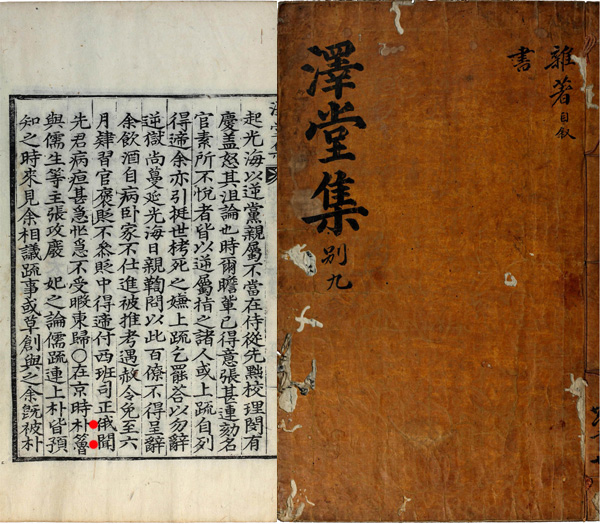 雜著 目敘
書
澤堂集 別九
澤堂集
起光海以逆黨親屬不當在侍從先黜校理閔有
慶盖怒其沮論也時爾瞻軰已得意張甚連劾名
官素所不悅者皆以逆屬指之諸人或上疏自列
得遆余亦引挺世栲死之嫌上疏乞罷答以勿辭
逆獄尚蔓延光海日親鞫問以此百僚不得呈辭
余飮酒自病卧家不仕進被推考遇赦令免至六
月肄習官褒貶不叅貶中得遆付西班司正俄聞
先君病疸甚急恾不受暇東歸○在京時朴
與儒生等主張攻廢 妃之論儒疏連上朴皆預
知之時來見余相議疏事或草創與之余旣被朴